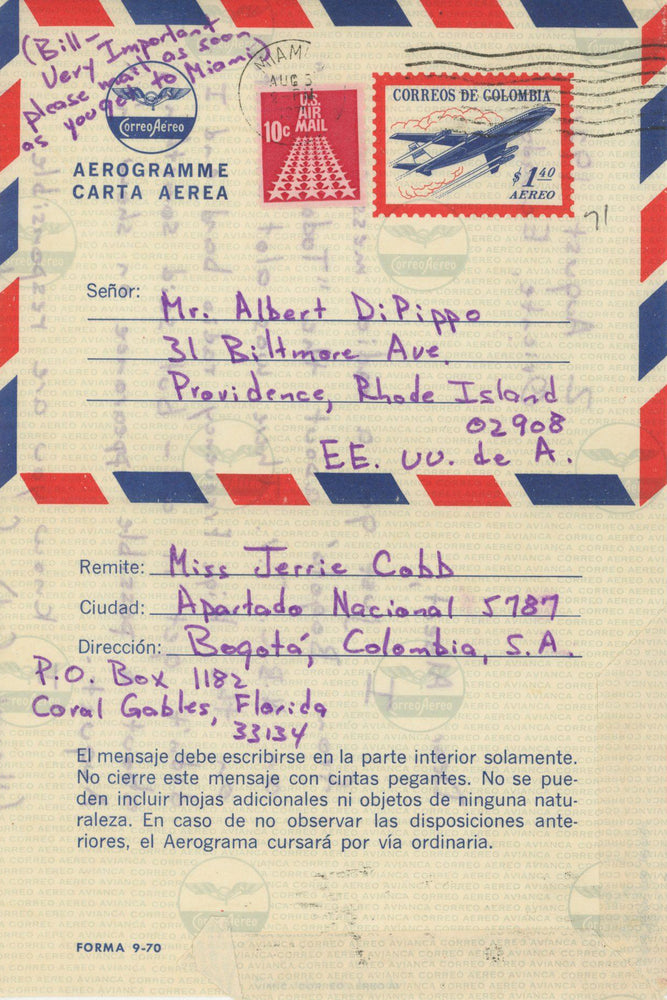 (Bill-
Very Important
please mail as soon
as you get to Miami)
Correo Aéreo
AEROGRAMME
CARTA AEREA
MIAMI
AUG 5
U.S.
AIR
MAIL
10c
CORREOS DE COLOMBIA
$1.40
AEREO
71
Señor: Mr. Albert DiPippo
31 Biltmore Ave.
Providence, Rhode Island
02908
EE. UU. de A.
Remite: Miss Jerrie Cobb
Ciudad: Apartado Nacional 5787
Dirección: Bogotá, Colombia, S.A.
P.O. Box 1182
Coral Gables, Florida
33134
El mensaje debe escribirse en la parte interior solamente.
No cierre este mensaje con cintas pegantes. No se pue-
den incluir hojas adicionales ni objetos de ninguna natu-
raleza. En caso de no observar las disposiciones ante-
riores, el Aerograma cursará por vía ordinaria.
FORMA 9-70